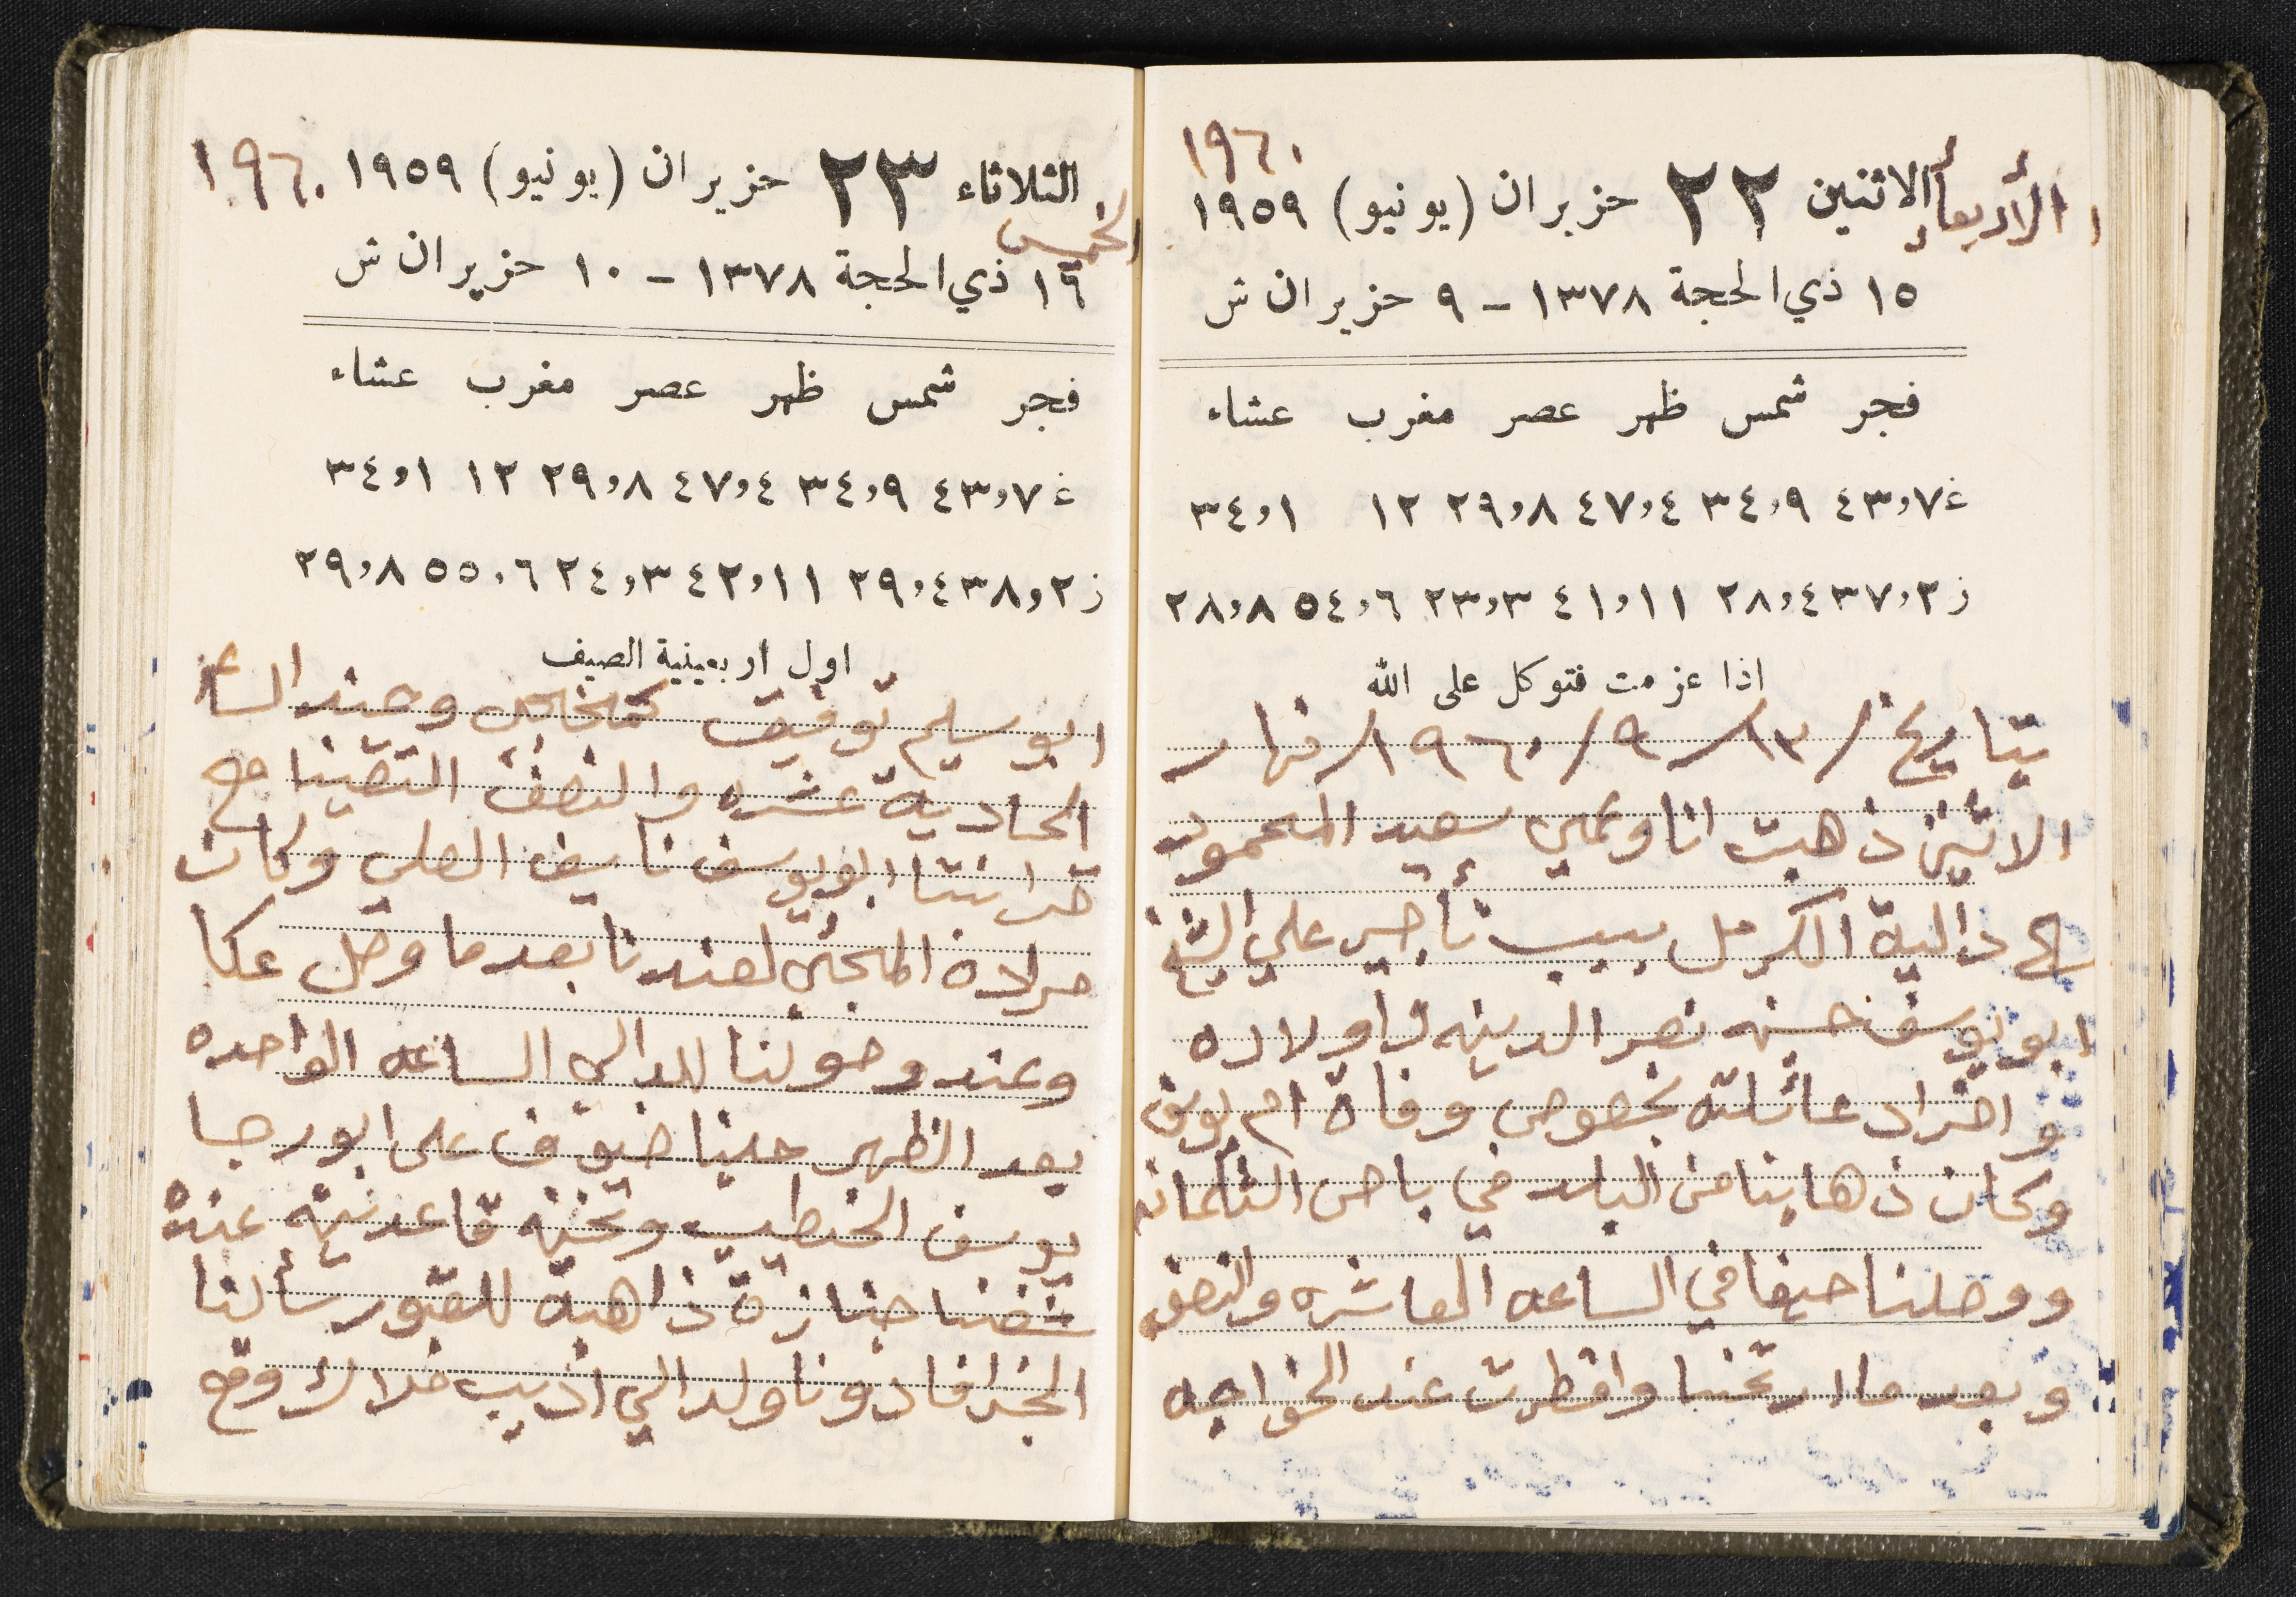 ١٩٦٠
الأربعاء الاثنين ٢٢ حزيران (يونيو) ١٩٥٩
١٥ ذي الحجة ١٣٧٨ – ٩ حزيران ش
فجر شمس ظهر عصر مغرب عشاء
غ ٤٣٫٧ ٣٤٫٩ ٤٧٫٤ ٢٩٫٨ ١٢ ٣٤٫١
ز ٣٧٫٢ ٢٨٫٤ ٤١٫١١ ٢٣٫٣ ٥٤٫٦ ٢٨٫٨
اذا عزمت فتوكل على الله
بتاريخ /١٣/٩/١٩٦٠ نهار
الاثنين ذهبت انا وعمي سعيد المحمود
دالية الكرمل بسبب تأجير علي الشيخ
ابو يوسف حسنه نصر الدينه واولاده
وافراد عائلته بخصوص وفاة ام يوسف
وكان ذهابنا من البلد في باص الثمانه
ووصلنا حيفا في الساعه العاشره والنصف
وبعد ما ارتحنا وافطرت عند الخواجه
الثلاثاء ٢٣ حزيران (يونيو) ١٩٥٩ ١٩٦٠
الخميس
١٦ ذي الحجة ١٣٧٨ – ١٠ حزيران ش
فجر شمس ظهر عصر مغرب عشاء
غ ٤٣٫٧ ٣٤٫٩ ٤٧٫٤ ٢٩٫٨ ١٢ ٣٤٫١
ز ٣٨٫٢ ٢٩٫٤ ٤٢٫١١ ٢٤٫٣ ٥٥٫٦ ٢٩٫٨
اول اربعينية الصيف
ابو سليم توفيق وعند الساعه
الحادية عشره والنصف التقينا مع
قرابتنا ابو يوسف نايف العلي وكان
مراده المجئ لعندنا بعدما وصل عكا
وعند وصولنا للدالي الساعه الواحده
بعد الظهر حلينا ضيوف على ابو رجا
يوسف الخطيب ونحنه قاعدنيه عنده
شفنا جنازة ذاهبة للقبور سألنا
الخبر افادونا ولد الي اذيب ملاك وقع